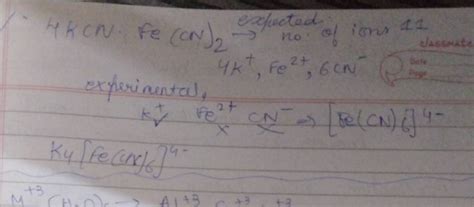 4KCN. Fe(CN)₂ → expected no. of ions 11
4K⁺, Fe²⁺, 6CN⁻
classmate
Date
Page
experimental
K⁺ Fe²⁺ CN⁻ → [Fe(CN)₆]⁴⁻
K₄[Fe(CN)₆]⁴⁻